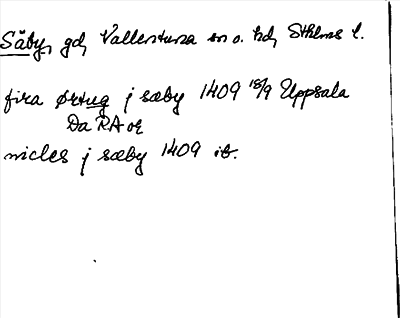 Säby, gd, Vallentuna sn o. hd, Sthlms l.
fira ørtug j sæby 1409 18/9 Uppsala
Da RA or
nicles j sæby 1409 ib.